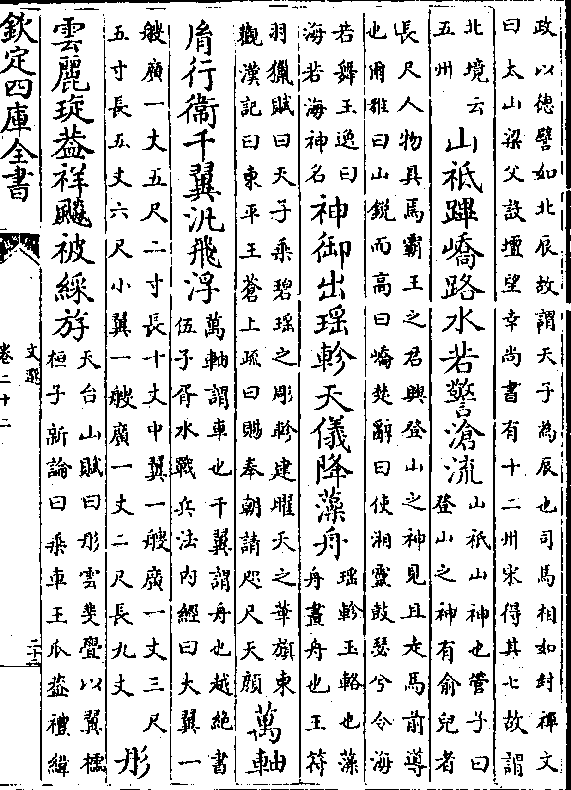 政以徳譬如北辰故謂天子為辰也司馬相如封禪文
曰太山梁父設壇望幸尚書有十二州宋得其七故謂
北境云
五州
山祗蹕嶠路水若警滄流
山祇山神也管子曰
登山之神有俞兒者
長尺人物具馬霸王之君興登山之神見且走馬前導
也爾雅曰山鋭而高曰嶠楚辭曰使湘靈鼓瑟兮令海
若舞王逸曰
海若海神名
神御出瑶軫天儀降藻舟
瑶軫玉輅也藻
舟畫舟也王符
羽獵賦曰天子乘碧瑶之彫軫建曜天之華旗東
觀漢記曰東平王蒼上疏曰賜奉朝請咫尺天顔
萬軸
㣧行衛千翼汎飛浮
萬軸謂車也千翼謂舟也越絶書
伍子胥水戰兵法内經曰大翼一
艘廣一丈五尺二寸長十丈中翼一艘廣一丈三尺
五寸長五丈六尺小翼一艘廣一丈二尺長九丈
彤
雲麗琁葢祥飈被綵斿
天台山賦曰彤雲斐亹以翼櫺
桓子新論曰乘車玉爪葢禮緯
欽定四庫全書
文選
卷二十二
二十三